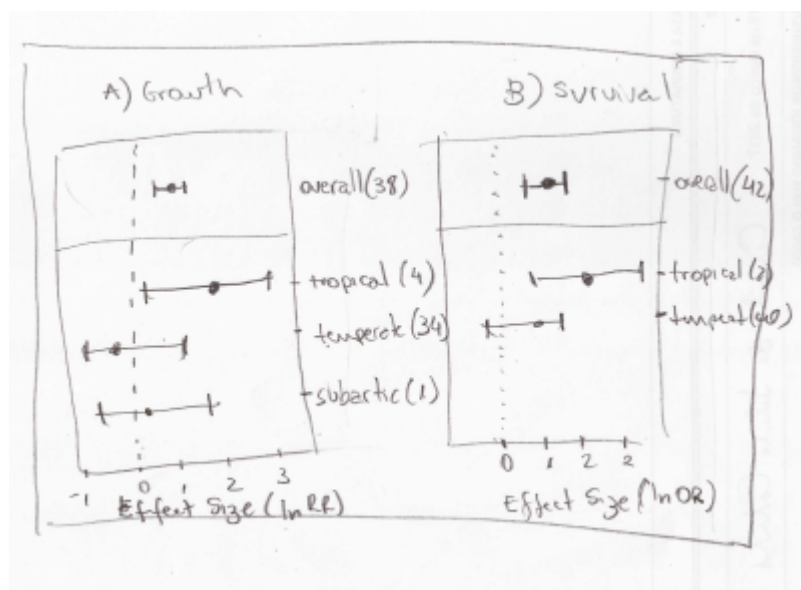 A) Growth
overall(38)
tropical (4)
temperate (34)
subartic (1)
-1 0 1 2 3
Effect Size (ln RR)
B) Survival
overall (42)
tropical (2)
temperat (40)
0 1 2 2
Effect Size (ln OR)